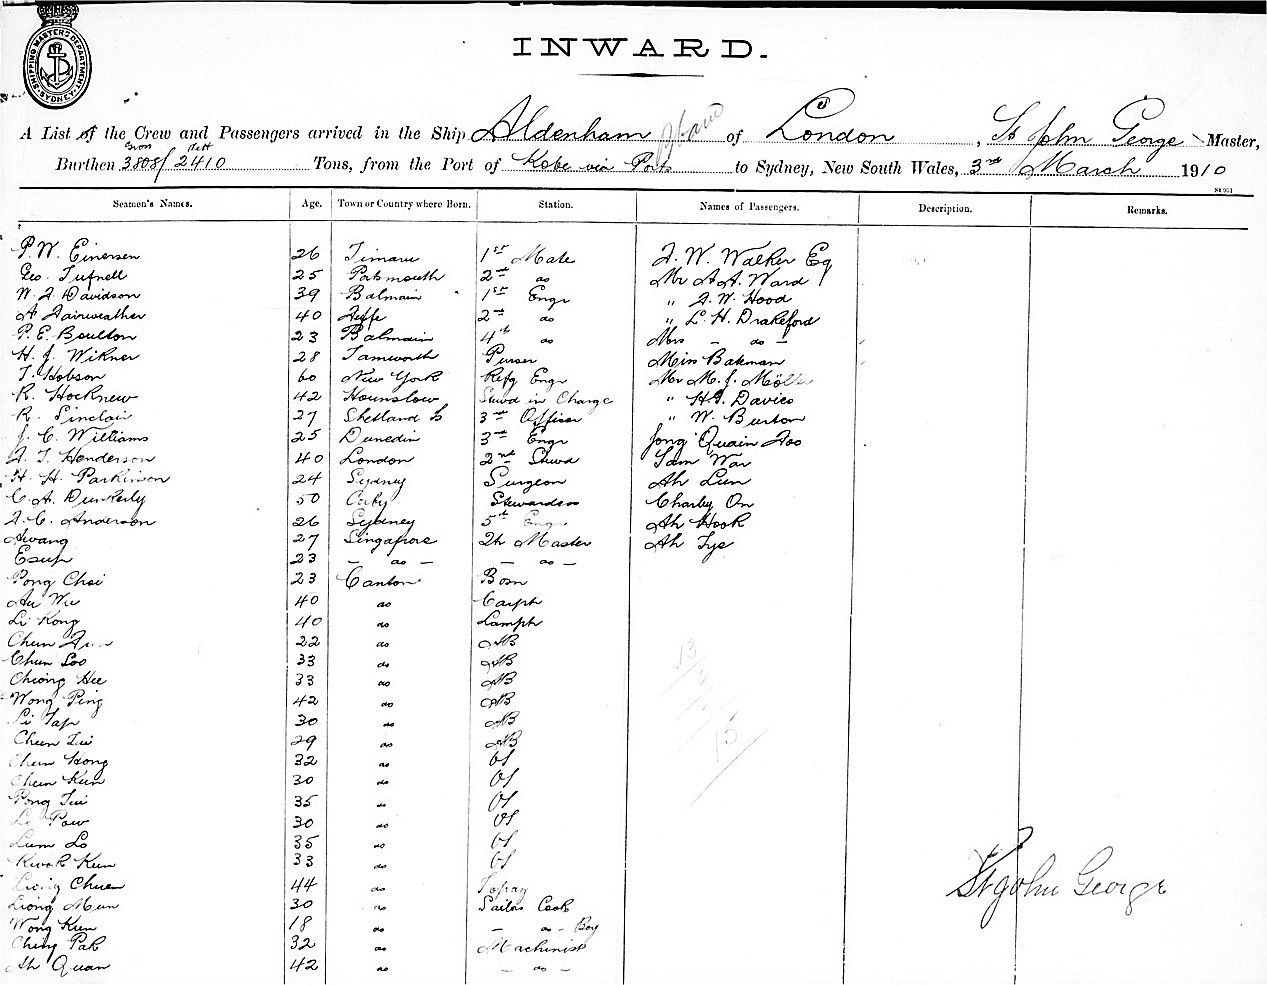 SHIPPING MASTER'S DEPARTMENT
SYDNEY
INWARD.
A List of the Crew and Passengers arrived in the Ship Aldenham of London, St John George Master,
Burthen Gross 3808 / Nett 2410 Tons, from the Port of Kobe via Ports to Sydney, New South Wales, 3rd March 1910
Seamen's Names. Age. Town or Country where Born. Station. Names of Passengers. Description. Remarks.
P. W. Einersen 26 Timaru 1st Mate F. W. Walker Esq
Geo. Tufnell 25 Portsmouth 2nd do Mr A. A. Ward
W. F. Davidson 39 Balmain 1st Engr " F. W. Hood
A Fairweather 40 2nd do " L. H. Drakeford
P. E. Boulton 23 Balmain 4th do Mrs - do -
H. J. Wikner 28 Tamworth Purser Miss Bateman
T. Hobson 60 New York Refg Engr Mr M. J.
R. Hocknew 42 Hounslow Stewd in Charge " H. T. Davies
R. Sinclair 27 Shetland Is 3rd Officer " W. Burton
J. C. Williams 25 Dunedin 3rd Engr Jong Quain Foo
F. T. Henderson 40 London 2nd Stewd Sam War
H. H. Parkinson 24 Sydney Surgeon Ah Lun
C. A. Dunkerly 50 Corby Stewardess Charley On
F. C. Anderson 26 Sydney 5th Engr Ah Hook
Awang 27 Singapore Qr Master Ah Tye
Esup 23 - do - - do -
Pong Choi 23 Canton Bosn
Au Wu 40 do Carptr
Li Kong 40 do Lampr
Chun 22 do AB
Chun Loo 33 do AB
Cheong Hee 33 do AB
Wong Ping 42 do AB
Li Tap 30 do AB
Chun Tui 29 do AB
Chun Hong 32 do OS
Chun Kun 30 do OS
Pong Tui 35 do OS
Lo Pow 30 do OS
Lum Lo 35 do OS
Kwok Kun 33 do OS
Liong Chuen 44 do Topay
Liong Mun 30 do Sailors Cook
Wong Kun 18 do - do - Boy
Ching Pak 32 do Machinist
Ah Quan 42 do - do -
13
2
15
St John George